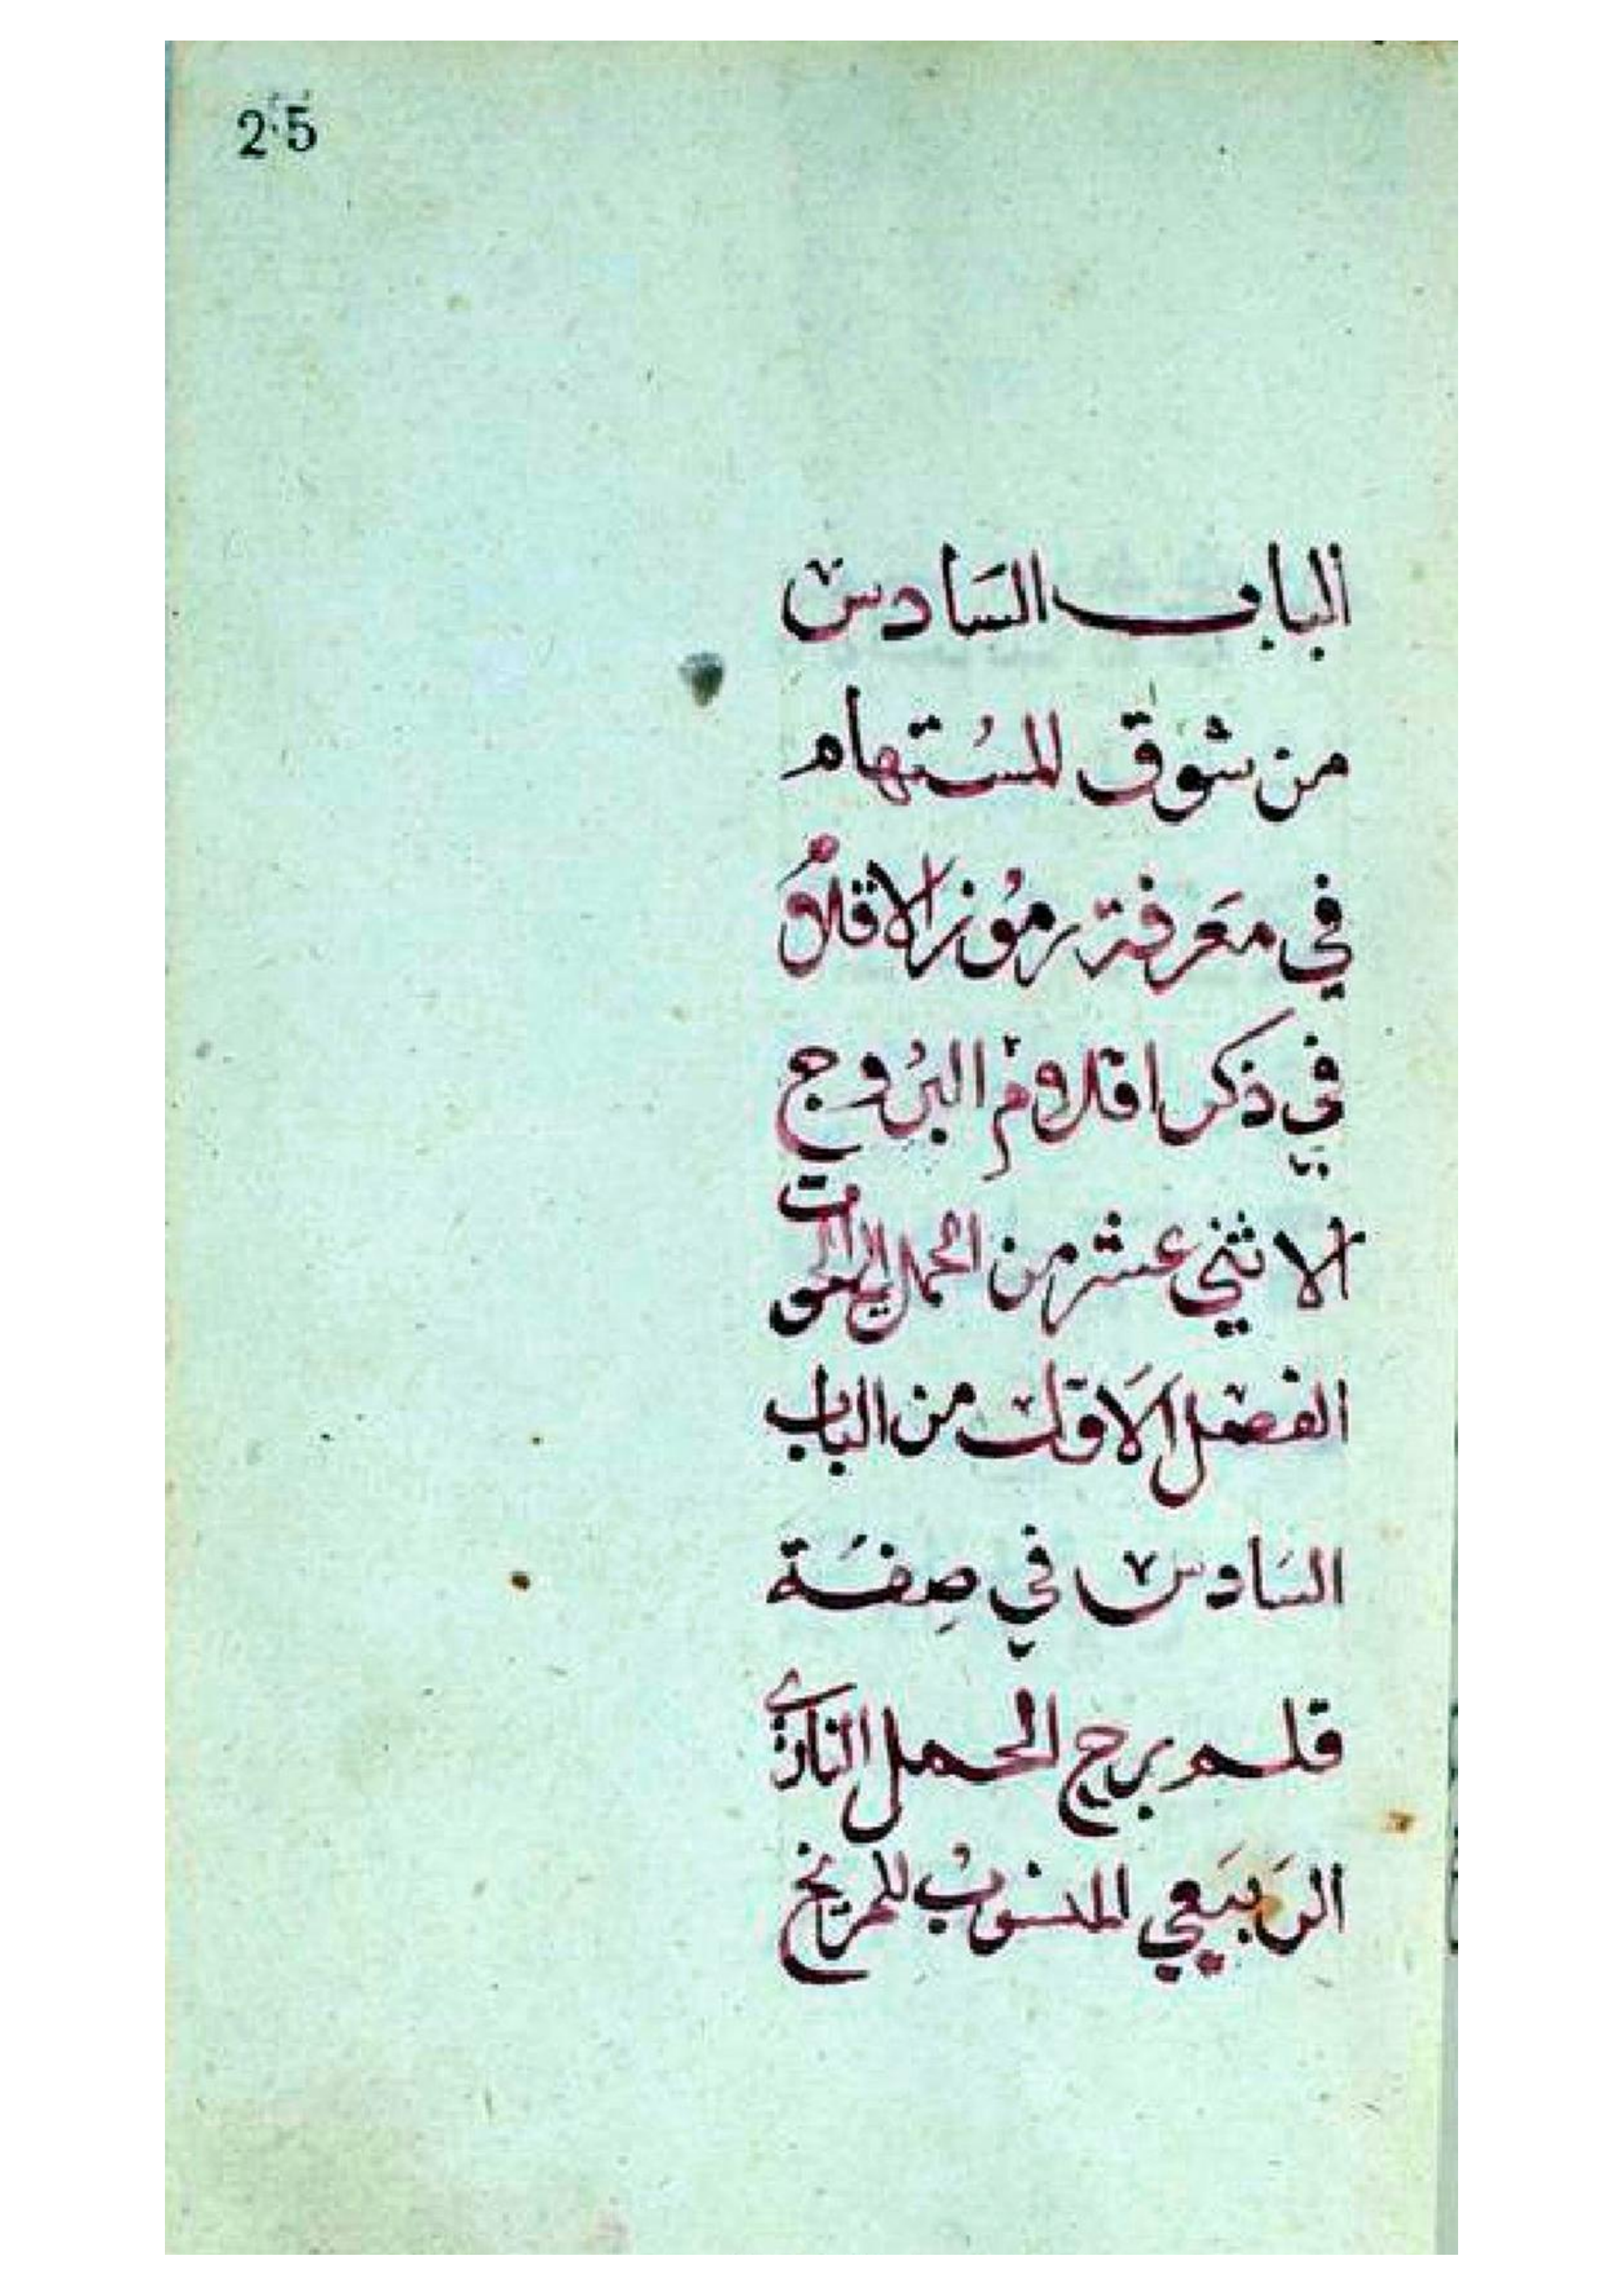 25
الباب السَادس
من شوق المسُتهام
في معَرفة رموُز الاقلام
في ذكر اقلام البرُوج
الاثني عشر من الحمل الى الحوت
الفصل الاَول من الباب
السَادس في صِفَة
قلم برج الحمل الناري
الرَبيَعي المنسوُب للمريخ